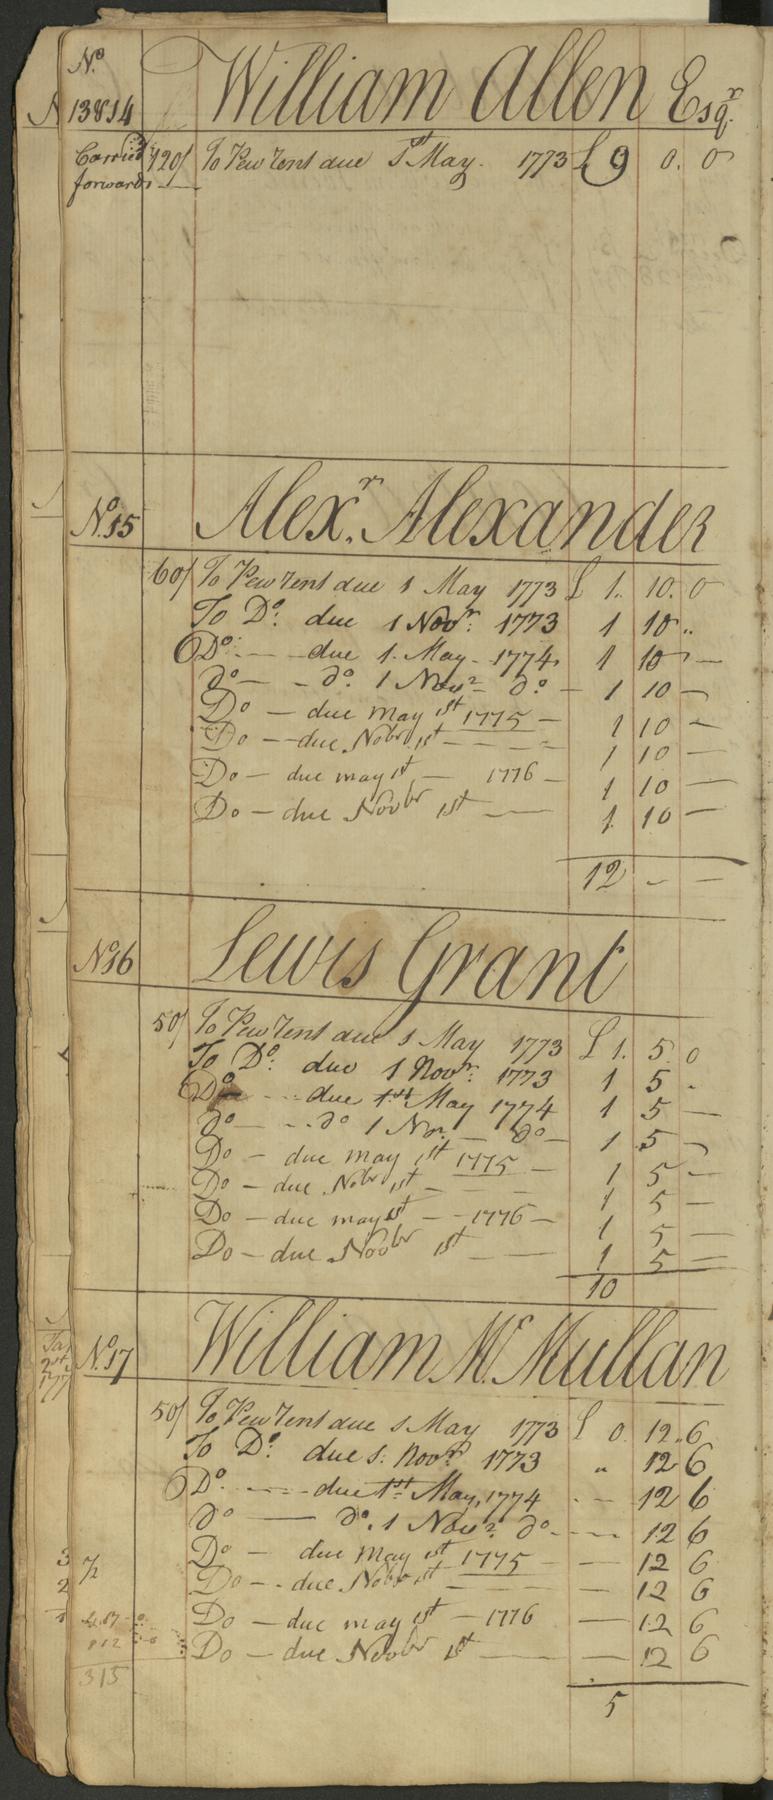 No.
13&14 William Allen Esqr.
Carried 120/ To Pew Rent due 1st May. 1773 £ 9 0. 0
forwards
No. 15 Alexr. Alexander
60/ To Pew Rent due 1 May 1773 £ 1. 10. 0
To Do. due 1 Novr. 1773 1 10 ..
Do. — due 1. May - 1774 1 10 —
do — - do. 1 Novr. do. — 1 10 —
Do — due may 1st 1775 — 1 10 —
Do — due Nobr 1st — — — 1 10 —
Do — due may 1st — 1776 — 1 10 —
Do — due Novbr 1st — 1 10 —
12 - —
No. 16 Lewis Grant
50/ To Pew Rent due 1 May 1773 £ 1. 5. 0
To Do. due 1 Novr. 1773 1 5 -
Do — due 1st May 1774 1 5 —
do — - do 1 Nov. — do — 1 5 —
Do — due may 1st 1775 — 1 5 —
Do — due Nobr 1st — — 1 5 —
Do — due may 1st — - 1776 — 1 5 —
Do — due Novbr 1st — — 1 5 —
10
No. 17 William McMullan
50/ To Pew Rent due 1 May 1773 £ 0 12..6
To Do. due 1. Novr. 1773 " 12 6
Do. — due 1st May, 1774 - — 12 6
do — do. 1 Novr. do. — 12 6
Do — due may 1st 1775 — 12 6
Do - - due Nobr 1st — — — 12 6
Do — due may 1st — 1776 — 12 6
Do — due Novbr 1st — — 12 6
5
315